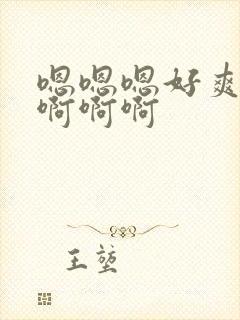 嗯嗯嗯好爽
啊啊啊
王堃